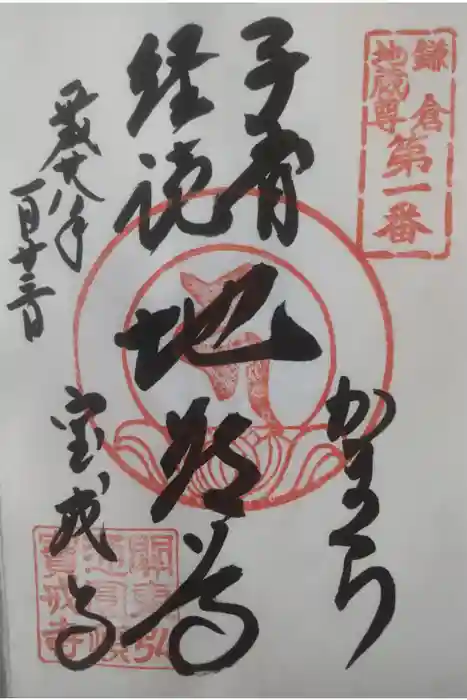 鎌倉
地蔵尊
第一番
子育
経読
地蔵尊
かまくら
平成十八年
一月十三日
宝戒寺
關東弘
通圓頓
寶戒寺